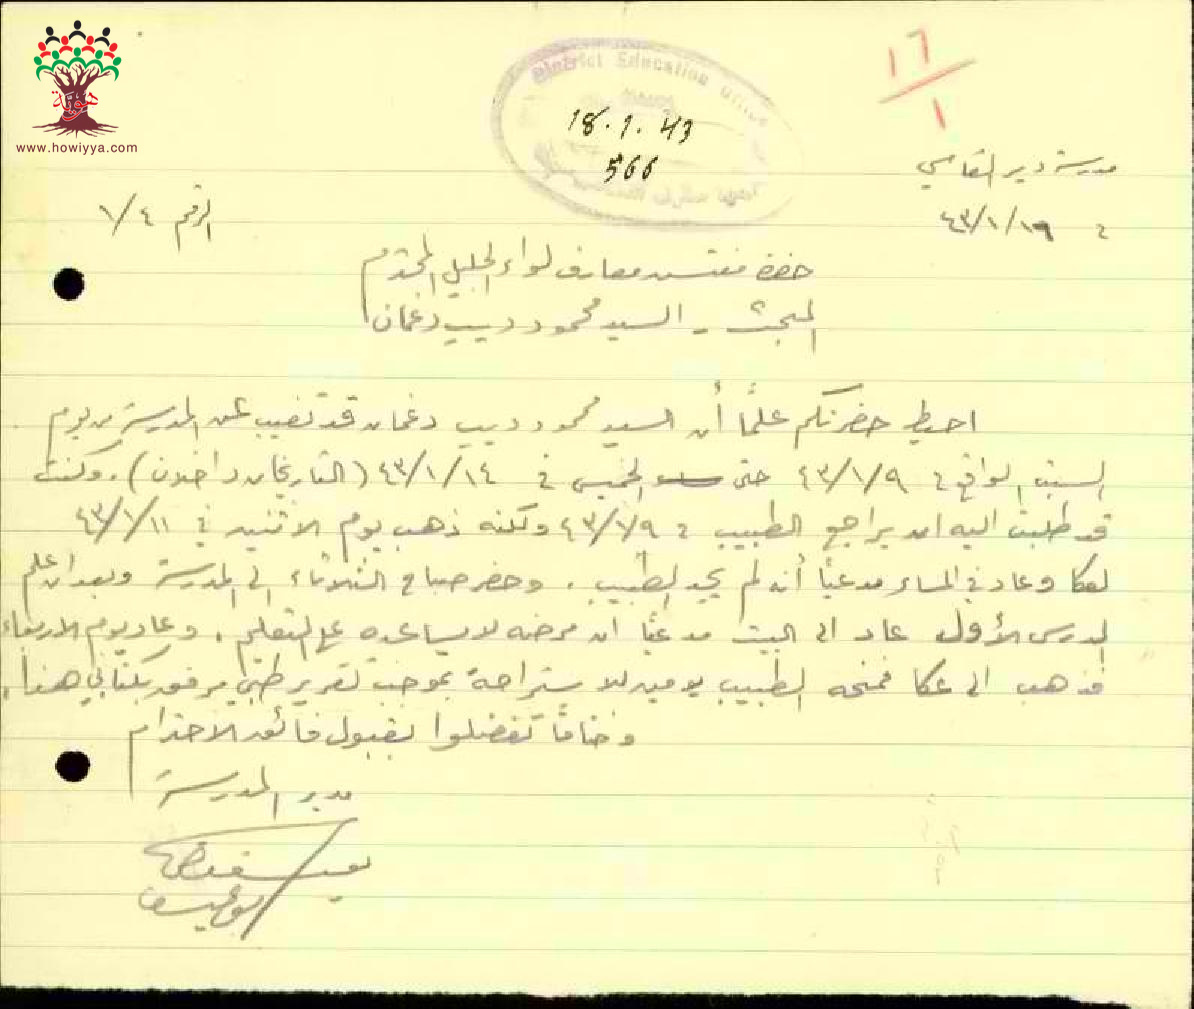 هوية
www.howiyya.com
District Education Office
18.1.43
566
١٦
١
مدرسة دير القاسي
الرقم ١/٤
حضرة مفتش معارف لواء الجليل المحترم
المبحث - السيد محمود ديب دغمان
احيط حضرتكم علمًا أن السيد محمود ديب دغمان قد تغيب عن المدرسة من يوم
السبت الواقع في ٤٣/١/٩ حتى الخميس في ٤٣/١/١٤ (التاريخان داخلان). وكنت
قد طلبت اليه ان يراجع الطبيب في ٤٣/١/٩ ولكنه ذهب يوم الاثنين في ٤٣/١/١١
لعكا وعاد في المساء مدعيًا أنه لم يجد الطبيب. وحضر صباح الثلاثاء الى المدرسة وبعد ان علم
الدرس الأول عاد الى البيت مدعيًا ان مرضه لا يساعده على التعليم. وعاد يوم الاربعاء
فذهب الى عكا فمنحه الطبيب يومين للاستراحة بموجب تقرير طبي مرفور بكتابي هذا.
وختامًا تفضلوا بقبول فائق الاحترام
مدير المدرسة